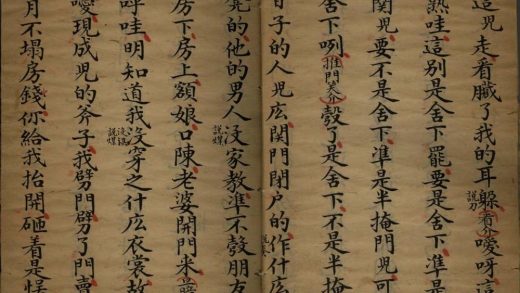 這児走看臟了我的耳躲看介噯呀這
熱哇這别是舍下罷要是舍下準是
関児要不是舍下準是半掩門児可
舍下咧推門关介彀了是舍下不是半掩
日子的人児庅関門閉戸的作什庅
的他的男人没家教準不彀朋友
說媒
房下房上額娘口陳老婆開門来
哇明知道我没穿之什庅衣裳故
現成児的斧子我劈門劈了門賣
月不塌房錢你給我抬開砸着是悮